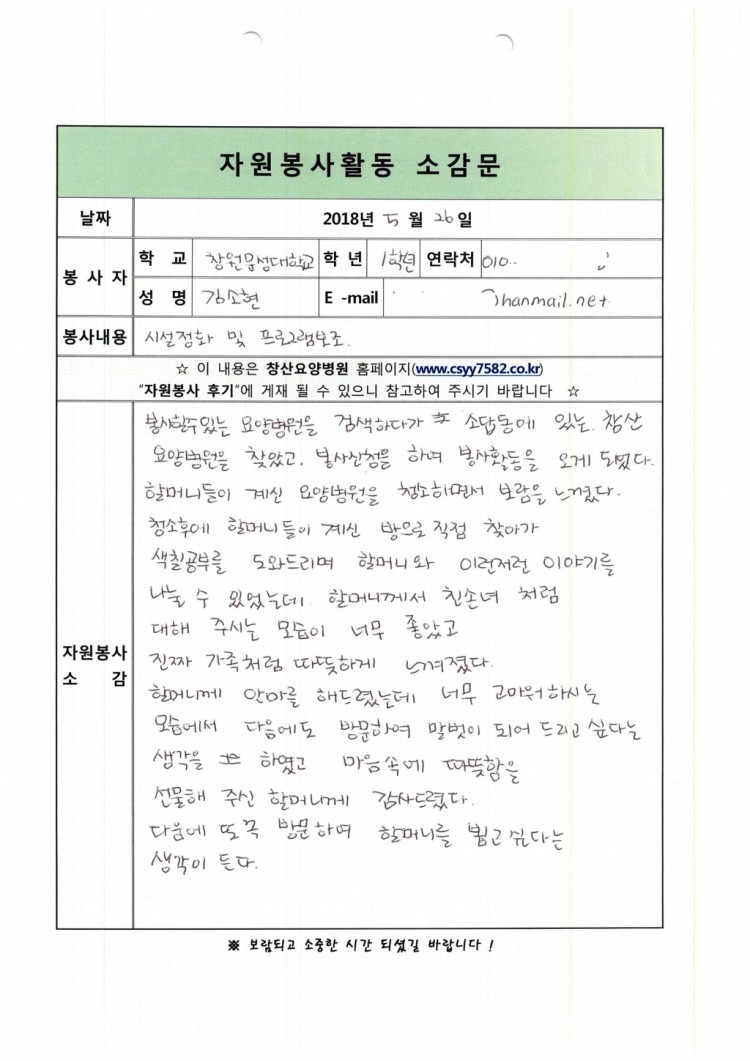 자원봉사활동 소감문
날짜 2018년 5 월 26 일
봉 사 자
학 교 창원문성대학교 학 년 1학년 연락처 010..
성 명 김소현 E -mail hanmail.net
봉사내용 시설정화 및 프로그램보조.
☆ 이 내용은 창산요양병원 홈페이지(www.csyy7582.co.kr)
"자원봉사 후기"에 게재 될 수 있으니 참고하여 주시기 바랍니다 ☆
자원봉사
소 감
봉사할수있는 요양병원을 검색하다가 소답동에 있는 창산
요양병원을 찾았고, 봉사신청을 하여 봉사활동을 오게 되었다.
할머니들이 계신 요양병원을 청소하면서 보람을 느꼈다.
청소후에 할머니들이 계신 방으로 직접 찾아가
색칠공부를 도와드리며 할머니와 이런저런 이야기를
나눌 수 있었는데 할머니께서 친손녀 처럼
대해 주시는 모습이 너무 좋았고
진짜 가족처럼 따뜻하게 느껴졌다.
할머니께 안마를 해드렸는데 너무 고마워하시는
모습에서 다음에도 방문하여 말벗이 되어 드리고 싶다는
생각을 하였고 마음속에 따뜻함을
선물해 주신 할머니께 감사드렸다.
다음에 또 꼭 방문하여 할머니를 뵙고 싶다는
생각이 든다.
※ 보람되고 소중한 시간 되셨길 바랍니다 !